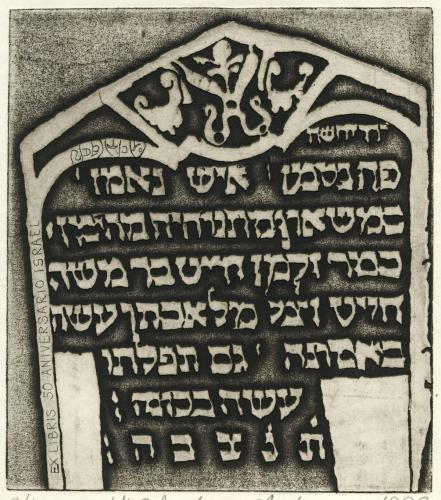 פה נטמן איש נאמן
במשאו ומתנו היה מהימן
כמר זלקמן חייט בר משה
חייט מלאכתו עשה
באמונה גם תפלתו
עשה בכונה
ת נ צ ב ה
EX LIBRIS 50 ANIVERSARIO ISRAEL